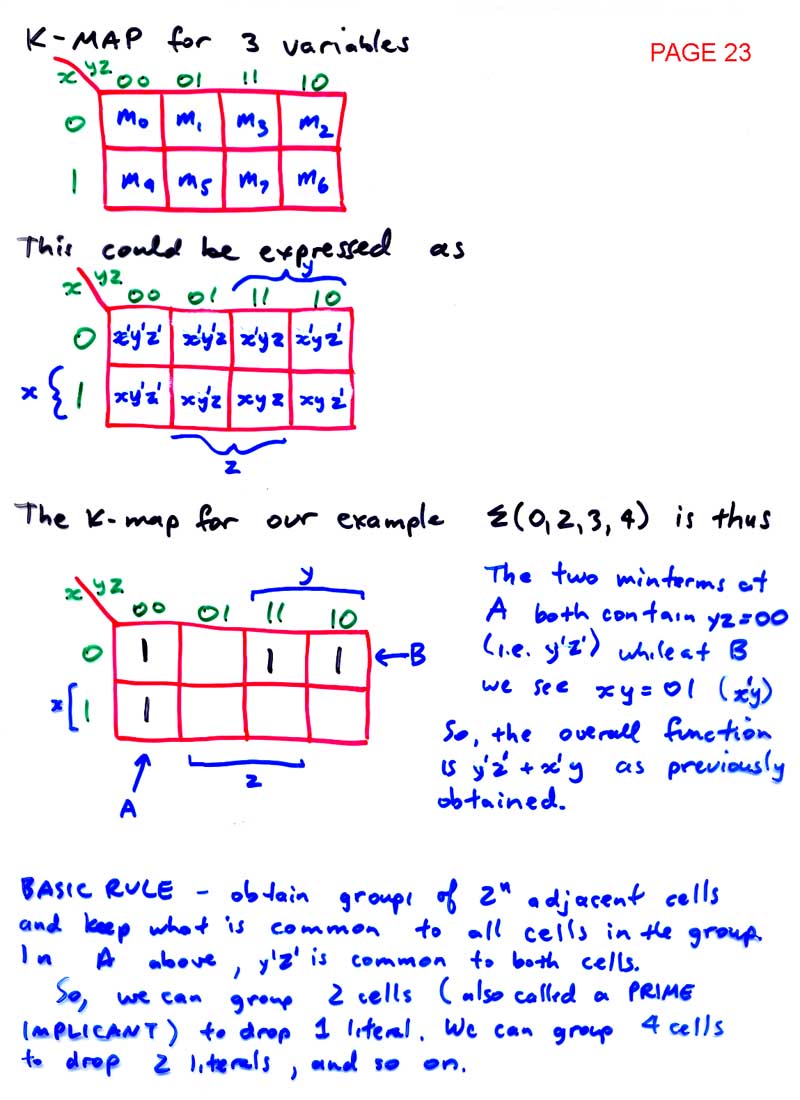 K-MAP for 3 variables
PAGE 23
x yz 00 01 11 10
0 m0 m1 m3 m2
1 m4 m5 m7 m6
This could be expressed as
y
x yz 00 01 11 10
0 x'y'z' x'y'z x'yz x'yz'
x { 1 xy'z' xy'z xyz xyz'
z
The K-map for our example Σ(0,2,3,4) is thus
y
x yz 00 01 11 10
0 1 1 1 ← B
x [ 1 1
z
A
The two minterms at
A both contain yz=00
(i.e. y'z') while at B
we see xy=01 (x'y)
So, the overall function
is y'z' + x'y as previously
obtained.
BASIC RULE - obtain groups of 2ⁿ adjacent cells
and keep what is common to all cells in the group.
In A above, y'z' is common to both cells.
So, we can group 2 cells (also called a PRIME
IMPLICANT) to drop 1 literal. We can group 4 cells
to drop 2 literals, and so on.